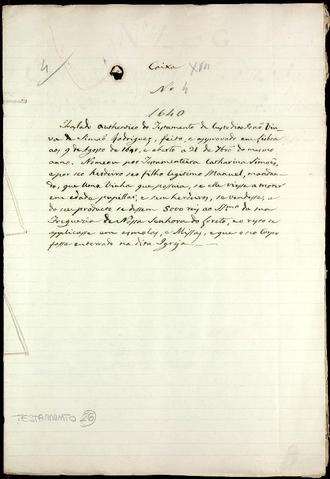 4
Caixa XIII
No 4
1640
Treslado authentico do Testamento de Custodia João Viu-
va de Simaõ Rodrigues, feito, e approvado em Lisboa
aos 9 de Agosto de 1640, e aberto a 21 de 7bro do mesmo
anno. Nomeou por Testamenteira Catharina Simoẽs,
e por seo herdeiro seo filho legitimo Manuel, mandan-
do, que huma Vinha que possuia, se elle viesse a morrer
em idade pupillar, e sem herdeiros, se vendesse, e
do seo producto se dessem 5000 reis ao SSmo da sua
Freguezia de Nossa Senhora do Loreto, e o resto se
applicasse em esmolas, e Missas, e que o seo Corpo
fosse enterrado na dita Igreja
TESTAMENTO 26